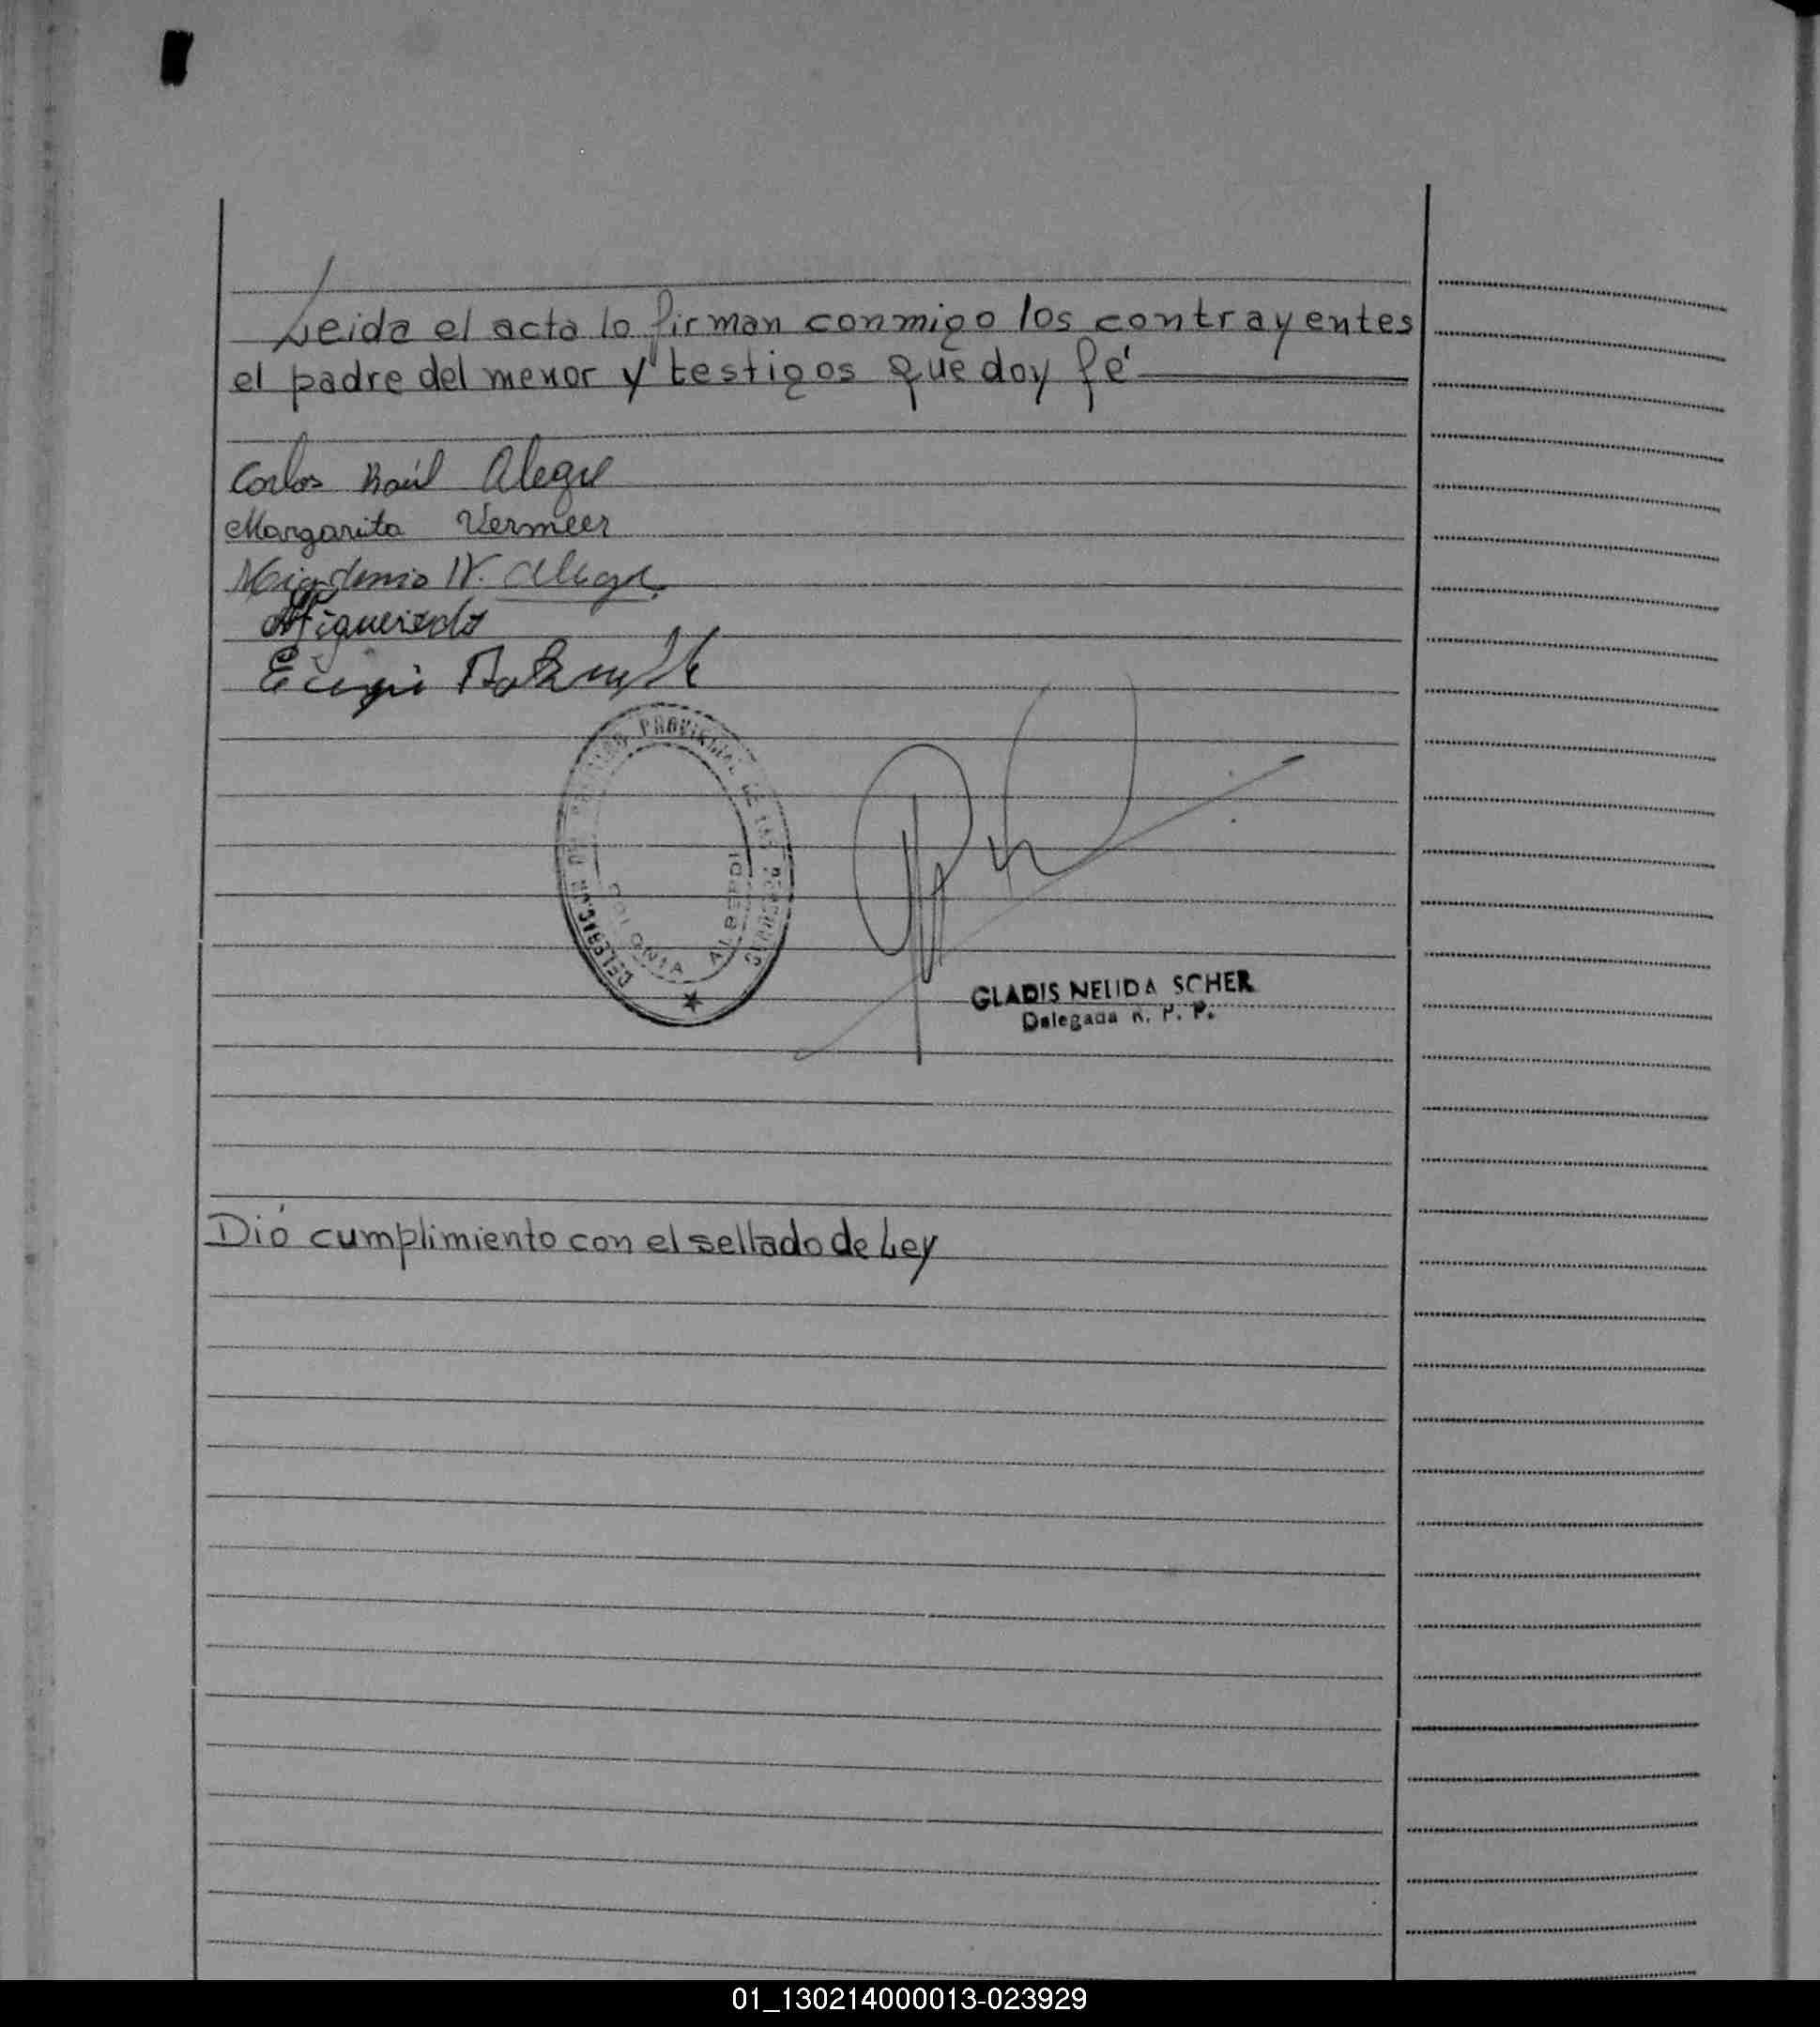 Leida el acta lo firman conmigo los contrayentes
el padre del menor y testigos que doy fé
Carlos Raúl Alegre
Margarita Vermeer
N. Alegre.
Figueiredo
DELEGACION DEL REGISTRO PROVINCIAL DE LAS PERSONAS
COLONIA ALBERDI
GLADIS NELIDA SCHER
Delegada R. P. P.
Dió cumplimiento con el sellado de Ley
01_130214000013-023929